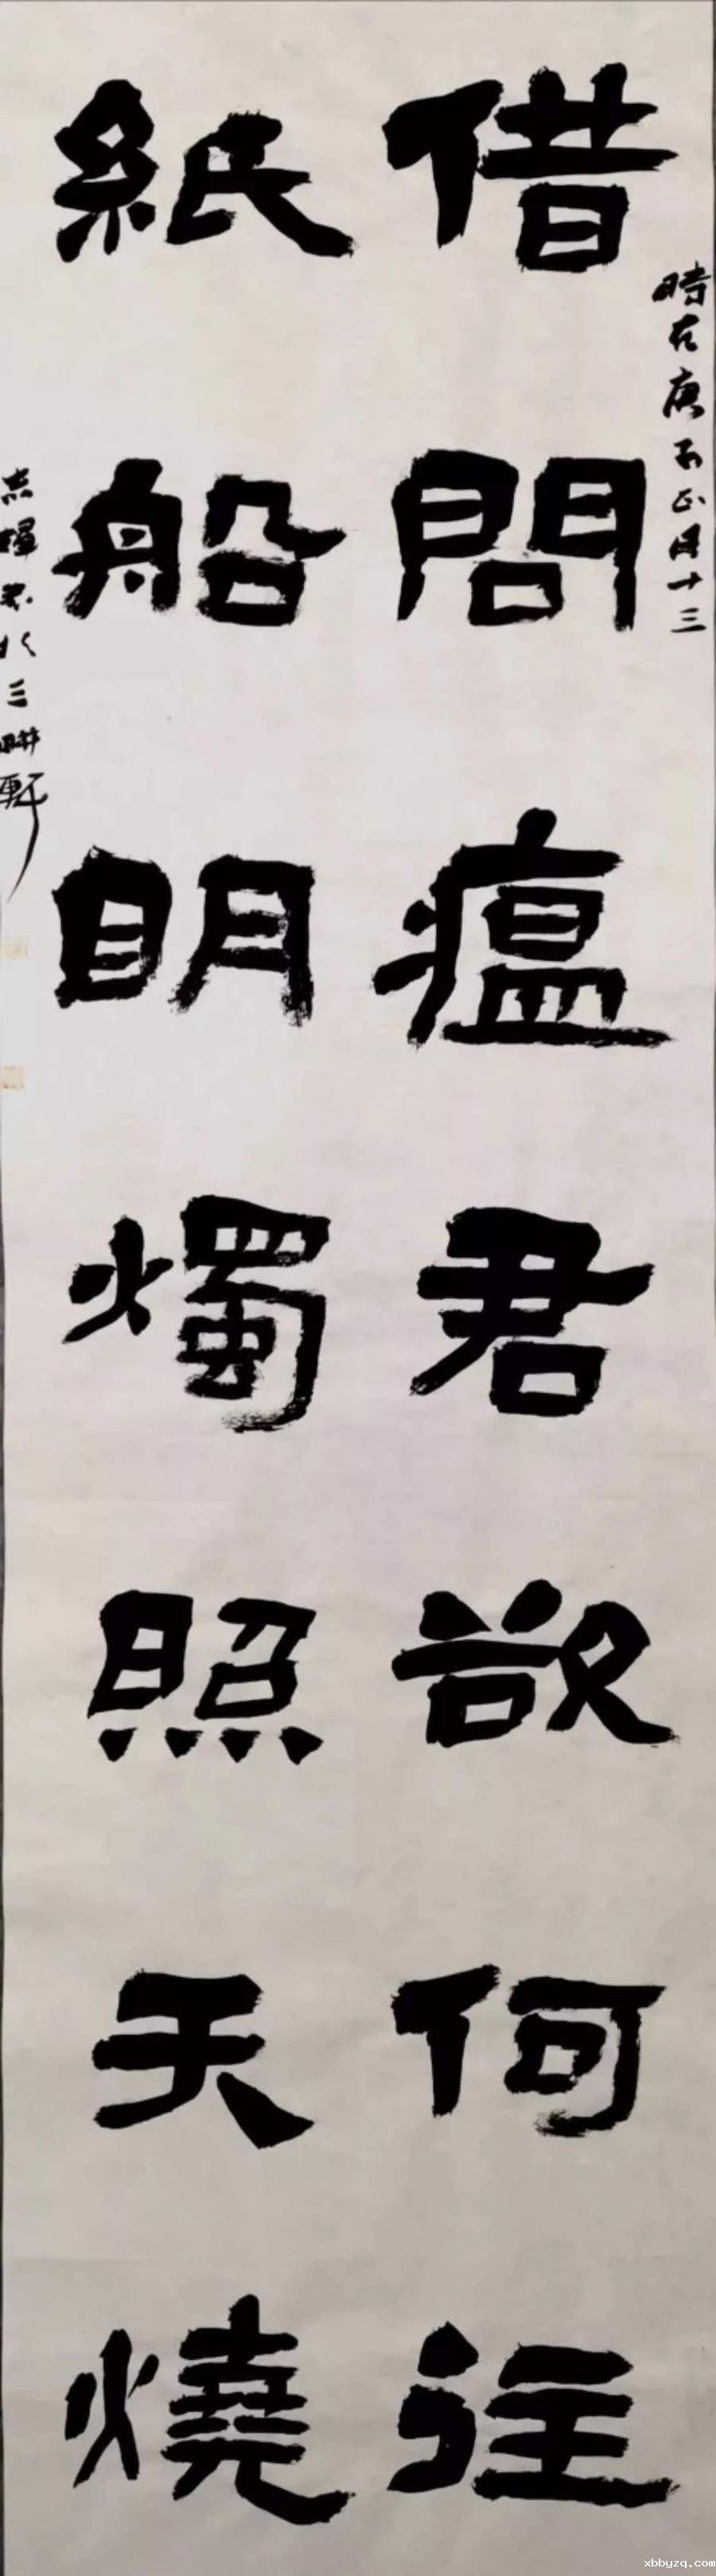 時在庚子正月十三
借問瘟君欲何往
紙船眀燭照天燒
志書於三畊軒
xbbyzq.com